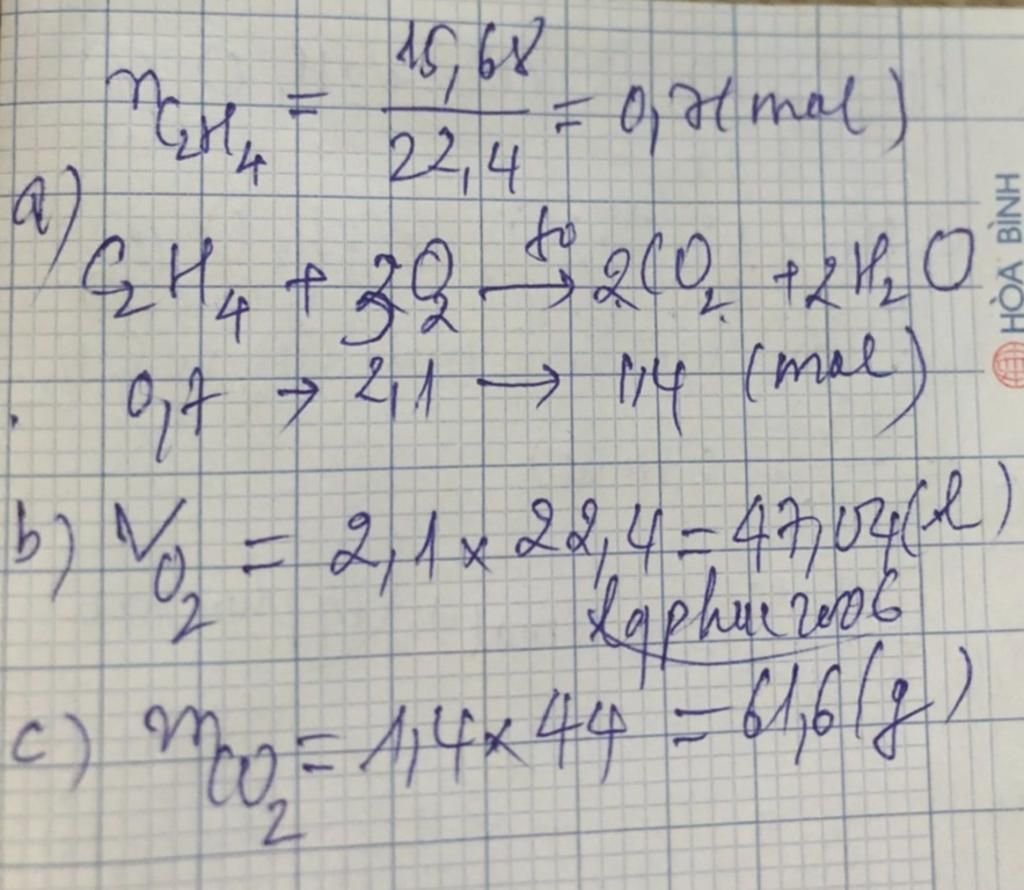 n C₂H₄ = 15,68 / 22,4 = 0,7 (mol)
a)
C₂H₄ + 3O₂ →(t⁰) 2CO₂ + 2H₂O
0,7 → 2,1 → 1,4 (mol)
b) V O₂ = 2,1 × 22,4 = 47,04 (l)
lqphuc2006
c) m CO₂ = 1,4 × 44 = 61,6 (g)
HÒA BÌNH